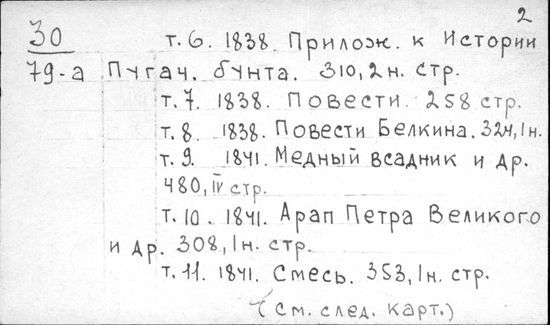 2
30 т. 6. 1838. Прилож. к Истории
79-а Пугач. бунта. 310, 2 н. стр.
т. 7. 1838. Повести. 258 стр.
т. 8. 1838. Повести Белкина. 324, 1 н.
т. 9. 1841. Медный всадник и др.
480, IV стр.
т. 10. 1841. Арап Петра Великого
и др. 308, 1 н. стр.
т. 11. 1841. Смесь. 353, 1 н. стр.
(см. след. карт.)